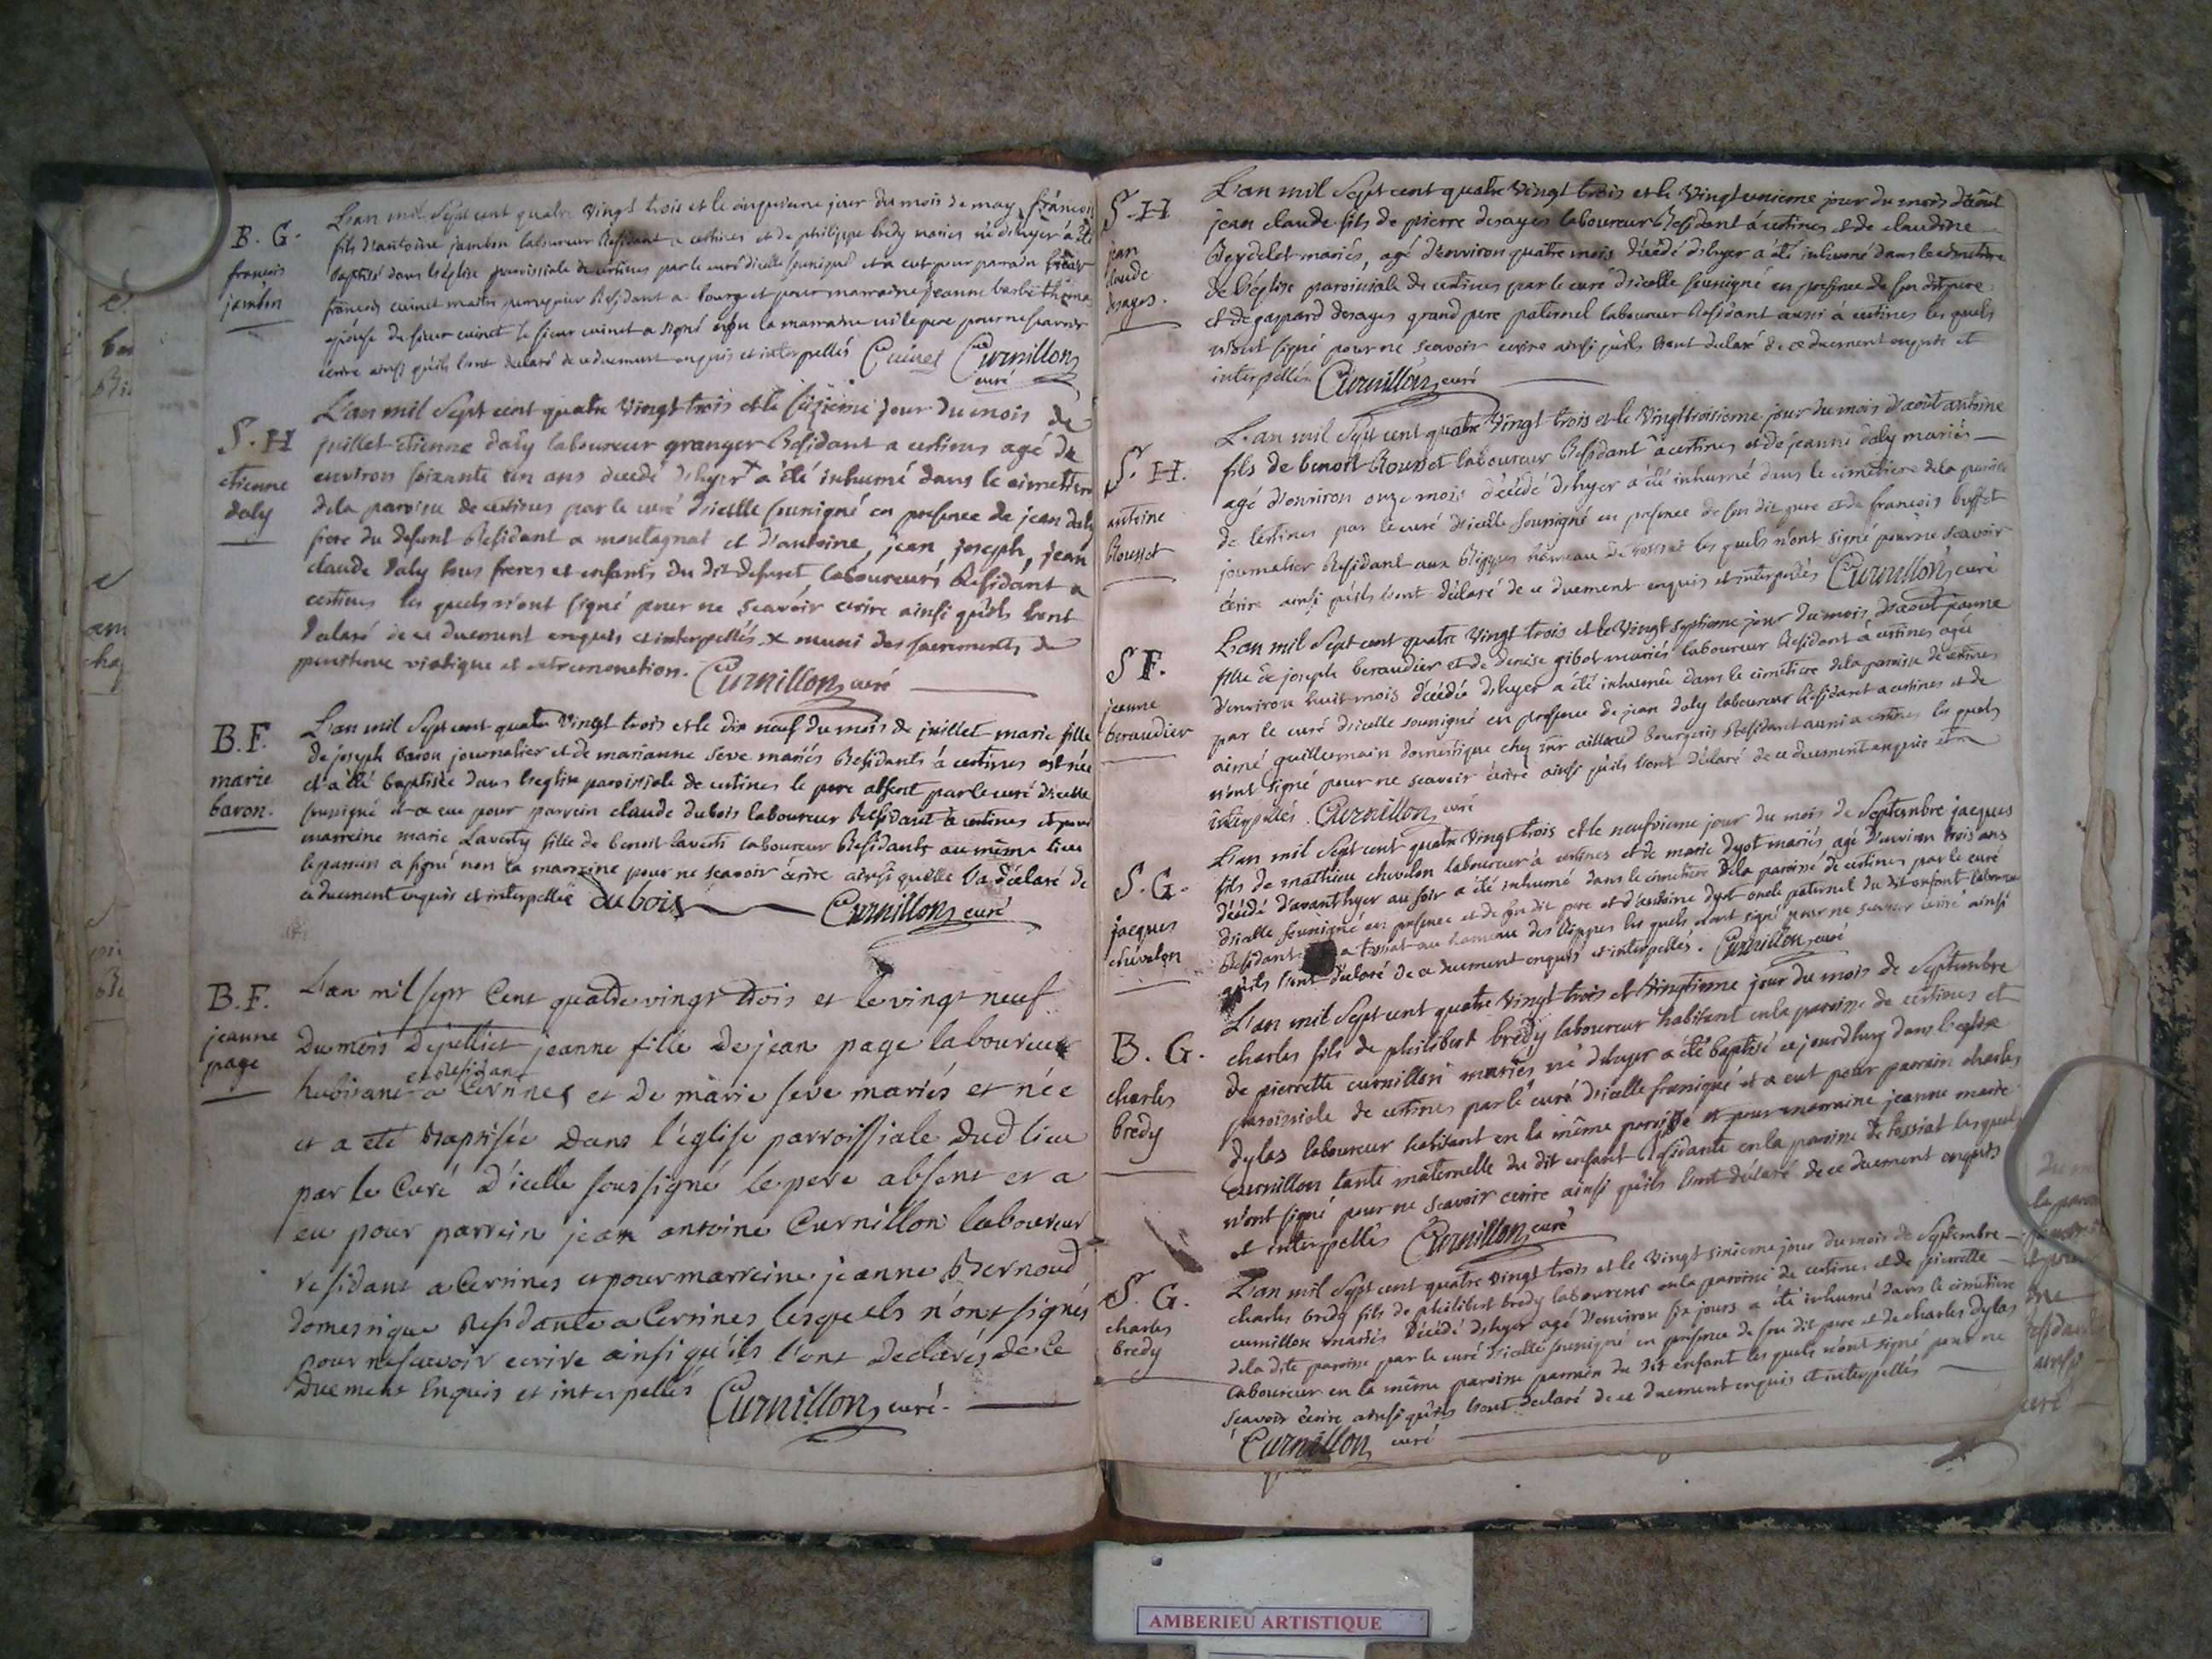 B. G.
françois
jambon
L'an mil sept cent quatre vingt trois et le cinquieme jour du mois de may françois
fils d'antoine jambon laboureur Residant a certines et de philippe bredy mariés né d'hyer a été
baptisé dans l'église parroissiale de certines par le curé d'icelle sousigné et a eut pour parrain sieur
françois cuinet maitre Residant a bourg et pour marraine jeanne barbe thoma
épouse du sieur cuinet le sieur cuinet a signé la marraine ni le pere pour ne scavoir
ecrire ainsi qu'ils l'ont declaré de ce duement enquis et interpellés Cuinet Curnillon
curé
S. H
etienne
daly
L'an mil sept cent quatre vingt trois et le seizieme jour du mois de
juillet etienne daly laboureur granger Residant a certines agé de
environ soixante un ans decedé d'hyer + a été inhumé dans le cimetiere
de la paroisse de certines par le curé d'icelle sousigné en presence de jean daly
frere du defunt Residant a montagnat et d'antoine, jean joseph, jean
claude daly tous freres et enfants du dit defunt laboureurs Residant a
certines les quels n'ont signé pour ne scavoir ecrire ainsi qu'ils l'ont
declaré de ce duement enquis et interpellés. x muni des sacrements de
penitence viatique et extremonction. Curnillon curé
B.F.
marie
baron.
L'an mil sept cent quatre vingt trois et le dix neuf du mois de juillet marie fille
de joseph baron journalier et de marianne seve mariés Residants à certines est née
et a été baptisée dans l'eglise paroissiale de certines le pere absent par le curé d'icelle
sousigné et a eu pour parrein claude dubois laboureur Residant a certines et pour
marreine marie Laverty fille de benoit laverti laboureur Residants au même lieu
le parrein a signé non la marreine pour ne scavoir écrire ainsi quelle l'a déclaré de
ce duement enquis et interpellée dubois Curnillon curé
B.F.
jeanne
page
L'an mil sept Cent quatre vingt trois et le vingt neuf
du mois de juilliet jeanne fille de jean page laboureur
et Residant
habitant a Certines et de marie seve mariés et née
et a eté baptisée dans l'eglise parroissiale dud lieu
par le Curé d'icelle soussigné le pere absent et a
eu pour parrein jean antoine Curnillon laboureur
residant a Certines et pour marreine jeanne Bernoud
domestique Residante a Certines lesquels n'ont signés
pour ne scavoir ecrire ainsi qu'ils l'ont declarés de Ce
duement Enquis et interpellés Curnillon curé.
S. H
jean
claude
desayes.
L'an mil sept cent quatre vingt trois et le vingt unieme jour du mois d'aoüt
jean claude fils de pierre desayes laboureur Residant à certines et de claudine
Reydelet mariés, agé d'environ quatre mois décédé d'hyer a été inhumé dans le cimetiere
de l'église paroissiale de certines par le curé d'icelle sousigné en presence de son dit pere
et de gaspard desayes grand pere paternel laboureur Residant aussi à certines les quels
n'ont signé pour ne scavoir ecrire ainsi qu'ils l'ont declaré de ce duement enquis et
interpellés. Curnillon curé
S. H.
antoine
Rousset
L'an mil sept cent quatre vingt trois et le vingt troisieme jour du mois d'aoüt antoine
fils de benoit Rousset laboureur Residant à certines et de jeanne daly mariés
agé d'environ onze mois décédé d'hyer a été inhumé dans le cimetiere de la paroisse
de Certines par le curé d'icelle sousigné en presence de son dit pere et de francois buffet
journalier Residant aux Rippes hameau de tossiat les quels n'ont signé pour ne scavoir
écrire ainsi qu'ils l'ont déclaré de ce duement enquis et interpellés Curnillon curé
S F.
jeanne
beraudier
L'an mil sept cent quatre vingt trois et le vingt septieme jour du mois d'aout jeanne
fille de joseph beraudier et de denise gibot mariés laboureur Residant à certines agée
d'environ huit mois décédée d'hyer a été inhumée dans le cimetiere de la paroisse de certines
par le curé d'icelle sousigné en presence de jean daly laboureur Residant a certines et de
aimé guillemain domestique chez sieur aillaud bourgeois Residant aussi a certines les quels
n'ont signé pour ne scavoir écrire ainsi qu'ils l'ont déclaré de ce duement enquis et
interpellés. Curnillon curé
S. G.
jacques
chevalon
L'an mil sept cent quatre vingt trois et le neufvieme jour du mois de septembre jacques
fils de mathieu chevalon laboureur à certines et de marie dyot mariés agé d'environ trois ans
décédé d'avant hyer au soir a été inhumé dans le cimetiere de la paroisse de certines par le curé
d'icelle sousigné en presence et de son dit pere et d'antoine dyot oncle paternel du dit enfant laboureur
Residant a tossiat au hameau des Rippes les quels n'ont signé pour ne scavoir ecrire ainsi
qu'ils l'ont déclaré de ce duement enquis et interpellés. Curnillon curé
B. G.
charles
bredy
L'an mil sept cent quatre vingt trois et vingtieme jour du mois de septembre
charles fils de philibert bredy laboureur habitant en la paroisse de certines et
de pierrette curnillon mariés né d'hyer a été baptisé ce jourd'huy dans l'église
paroissiale de certines par le curé d'icelle sousigné et a eut pour parrain charles
dylas laboureur habitant en la même paroisse et pour marraine jeanne marie
curnillon tante maternelle du dit enfant Residante en la paroisse de tossiat lesquels
n'ont signé pour ne scavoir ecrire ainsi qu'ils l'ont déclaré de ce duement enquis
et interpellés Curnillon curé
S. G.
charles
bredy
L'an mil sept cent quatre vingt trois et le vingt sixieme jour du mois de septembre
charles bredy fils de philibert bredy laboureur en la paroisse de certines et de pierrette
curnillon mariés décédé d'hyer agé d'environ six jours a été inhumé dans le cimetiere
de la dite paroisse par le curé d'icelle sousigné en presence de son dit pere et de charles dylas
laboureur en la même paroisse parrain du dit enfant les quels n'ont signé pour ne
scavoir écrire ainsi qu'ils l'ont declaré de ce duement enquis et interpellés
Curnillon curé
AMBERIEU ARTISTIQUE